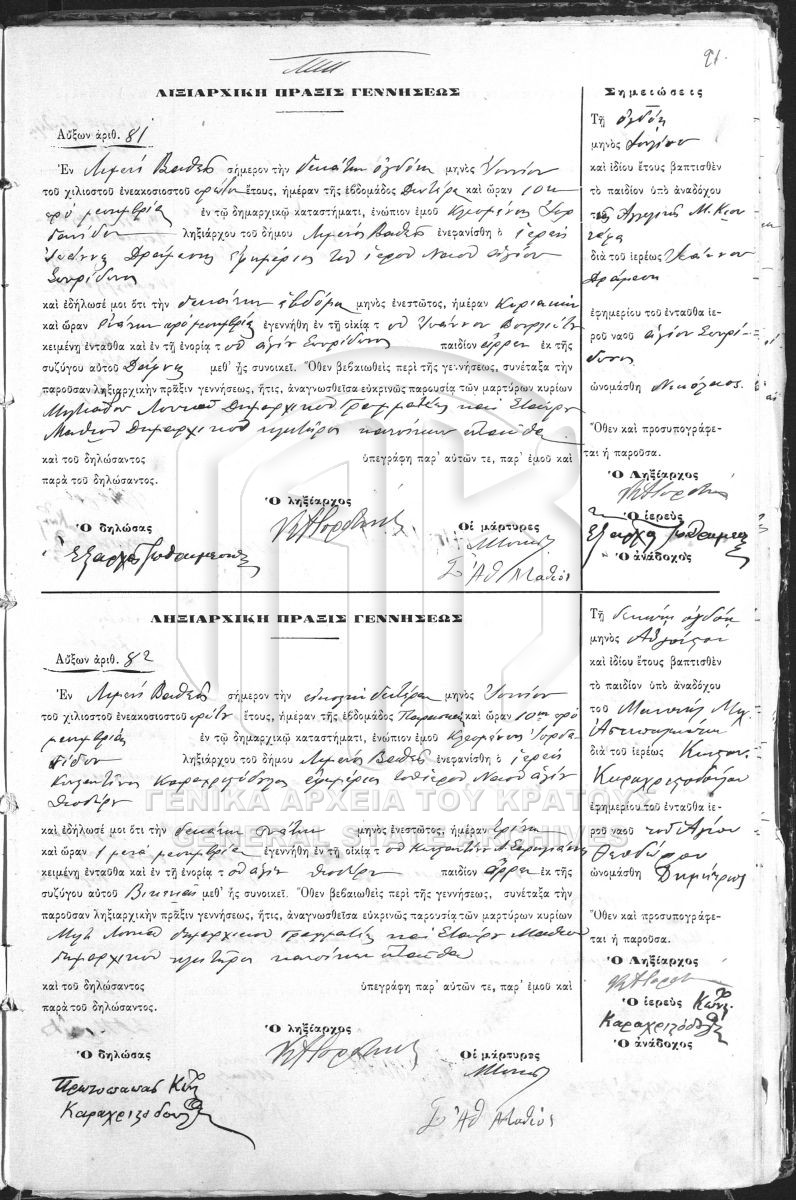 91.
ΛΙΞΙΑΡΧΙΚΗ ΠΡΑΞΙΣ ΓΕΝΝΗΣΕΩΣ
Αὔξων ἀριθ. 81
Ἐν Λιμένι Βαθέος σήμερον τὴν δεκάτην ὀγδόην μηνὸς Ἰουνίου
τοῦ χιλιοστοῦ ἐνεακοσιοστοῦ πρώτου ἔτους, ἡμέραν τῆς ἑβδομάδος Δευτέρα καὶ ὥραν 10ην
πρὸ μεσημβρίας ἐν τῷ δημαρχικῷ καταστήματι, ἐνώπιον ἐμοῦ
ληξιάρχου τοῦ δήμου Λιμένος Βαθέος ἐνεφανίσθη ὁ ἱερεὺς
Ἰωάννης Δράμανης ἐφημέριος τοῦ ἱεροῦ Ναοῦ ἁγίου
Σπυρίδωνος
καὶ ἐδήλωσέ μοι ὅτι τὴν δεκάτην ἑβδόμην μηνὸς ἐνεστῶτος, ἡμέραν Κυριακὴν
καὶ ὥραν ἐνάτην πρὸ μεσημβρίας ἐγεννήθη ἐν τῇ οἰκίᾳ τοῦ Ἰωάννου
κειμένῃ ἐνταῦθα καὶ ἐν τῇ ἐνορίᾳ τοῦ ἁγίου Σπυρίδωνος παιδίον ἄρρεν ἐκ τῆς
συζύγου αὐτοῦ μεθ᾽ ἧς συνοικεῖ. Ὅθεν βεβαιωθεὶς περὶ τῆς γεννήσεως, συνέταξα τὴν
παροῦσαν ληξιαρχικὴν πρᾶξιν γεννήσεως, ἥτις, ἀναγνωσθεῖσα εὐκρινῶς παρουσίᾳ τῶν μαρτύρων κυρίων
Μιλτιάδου Λουκᾶ Δημαρχικοῦ Γραμματέως καὶ Σταύρου
Μαθιοῦ Δημαρχικοῦ κλητῆρος κατοίκων ἐνταῦθα
καὶ τοῦ δηλώσαντος ὑπεγράφη παρ᾽ αὐτῶν τε, παρ᾽ ἐμοῦ καὶ
παρὰ τοῦ δηλώσαντος.
Ὁ ληξίαρχος
Ὁ δηλώσας Οἱ μάρτυρες
Σ Ἀθ Μαθιός
Σημειώσεις
Τῇ ὀγδόῃ
μηνὸς Ἰουλίου
καὶ ἰδίου ἔτους βαπτισθὲν
τὸ παιδίον ὑπὸ ἀναδόχου
διὰ τοῦ ἱερέως Ἰωάννου
Δράμανη
ἐφημερίου τοῦ ἐνταῦθα ἱε-
ροῦ ναοῦ ἁγίου Σπυρί-
δωνος
ὠνομάσθη Νικόλαος.
Ὅθεν καὶ προσυπογράφε-
ται ἡ παροῦσα.
Ὁ Ληξίαρχος
Ὁ ἱερεὺς
Ὁ ἀνάδοχος
ΛΗΞΙΑΡΧΙΚΗ ΠΡΑΞΙΣ ΓΕΝΝΗΣΕΩΣ
Αὔξων ἀριθ. 82
Ἐν Λιμένι Βαθέος σήμερον τὴν εἰκοστὴν δευτέραν μηνὸς Ἰουνίου
τοῦ χιλιοστοῦ ἐνεακοσιοστοῦ πρώτου ἔτους, ἡμέραν τῆς ἑβδομάδος Παρασκευὴ καὶ ὥραν 10ην πρὸ
μεσημβρίας ἐν τῷ δημαρχικῷ καταστήματι, ἐνώπιον ἐμοῦ
ληξιάρχου τοῦ δήμου Λιμένος Βαθέος ἐνεφανίσθη ὁ ἱερεὺς
Κωνσταντῖνος Καραχριζόδουλος ἐφημέριος τοῦ ἱεροῦ Ναοῦ ἁγίου
Θεοδώρου
καὶ ἐδήλωσέ μοι ὅτι τὴν δεκάτην ἐνάτην μηνὸς ἐνεστῶτος, ἡμέραν τρίτην
καὶ ὥραν 1 μετὰ μεσημβρίαν ἐγεννήθη ἐν τῇ οἰκίᾳ τοῦ Κωνσταντίνου
κειμένῃ ἐνταῦθα καὶ ἐν τῇ ἐνορίᾳ τοῦ ἁγίου Θεοδώρου παιδίον ἄρρεν ἐκ τῆς
συζύγου αὐτοῦ μεθ᾽ ἧς συνοικεῖ. Ὅθεν βεβαιωθεὶς περὶ τῆς γεννήσεως, συνέταξα τὴν
παροῦσαν ληξιαρχικὴν πρᾶξιν γεννήσεως, ἥτις, ἀναγνωσθεῖσα εὐκρινῶς παρουσίᾳ τῶν μαρτύρων κυρίων
Μιλτ Λουκᾶ δημαρχικοῦ Γραμματέως καὶ Σταύρου Μαθιοῦ
δημαρχικοῦ κλητῆρος κατοίκων ἐνταῦθα
καὶ τοῦ δηλώσαντος ὑπεγράφη παρ᾽ αὐτῶν τε, παρ᾽ ἐμοῦ καὶ
παρὰ τοῦ δηλώσαντος.
Ὁ ληξίαρχος
Ὁ δηλώσας Οἱ μάρτυρες
Πρωτοπαπᾶς Κων
Καραχριζόδουλος
Σ Ἀθ Μαθιός
Τῇ δεκάτῃ ὀγδόῃ
μηνὸς
καὶ ἰδίου ἔτους βαπτισθὲν
τὸ παιδίον ὑπὸ ἀναδόχου
τοῦ Μανουὴλ
διὰ τοῦ ἱερέως Κωνσταν.
Καραχριζοδούλου
ἐφημερίου τοῦ ἐνταῦθα ἱε-
ροῦ ναοῦ τοῦ Ἁγίου
Θεοδώρου
ὠνομάσθη Δημήτριος
Ὅθεν καὶ προσυπογράφε-
ται ἡ παροῦσα.
Ὁ Ληξίαρχος
Ὁ ἱερεὺς Κων
Καραχριζόδουλος
Ὁ ἀνάδοχος
ΓΕΝΙΚΑ ΑΡΧΕΙΑ ΤΟΥ ΚΡΑΤΟΥΣ
GENERAL STATE ARCHIVES